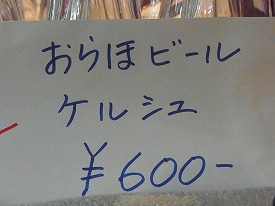 おらほビール
ケルシュ
¥600-